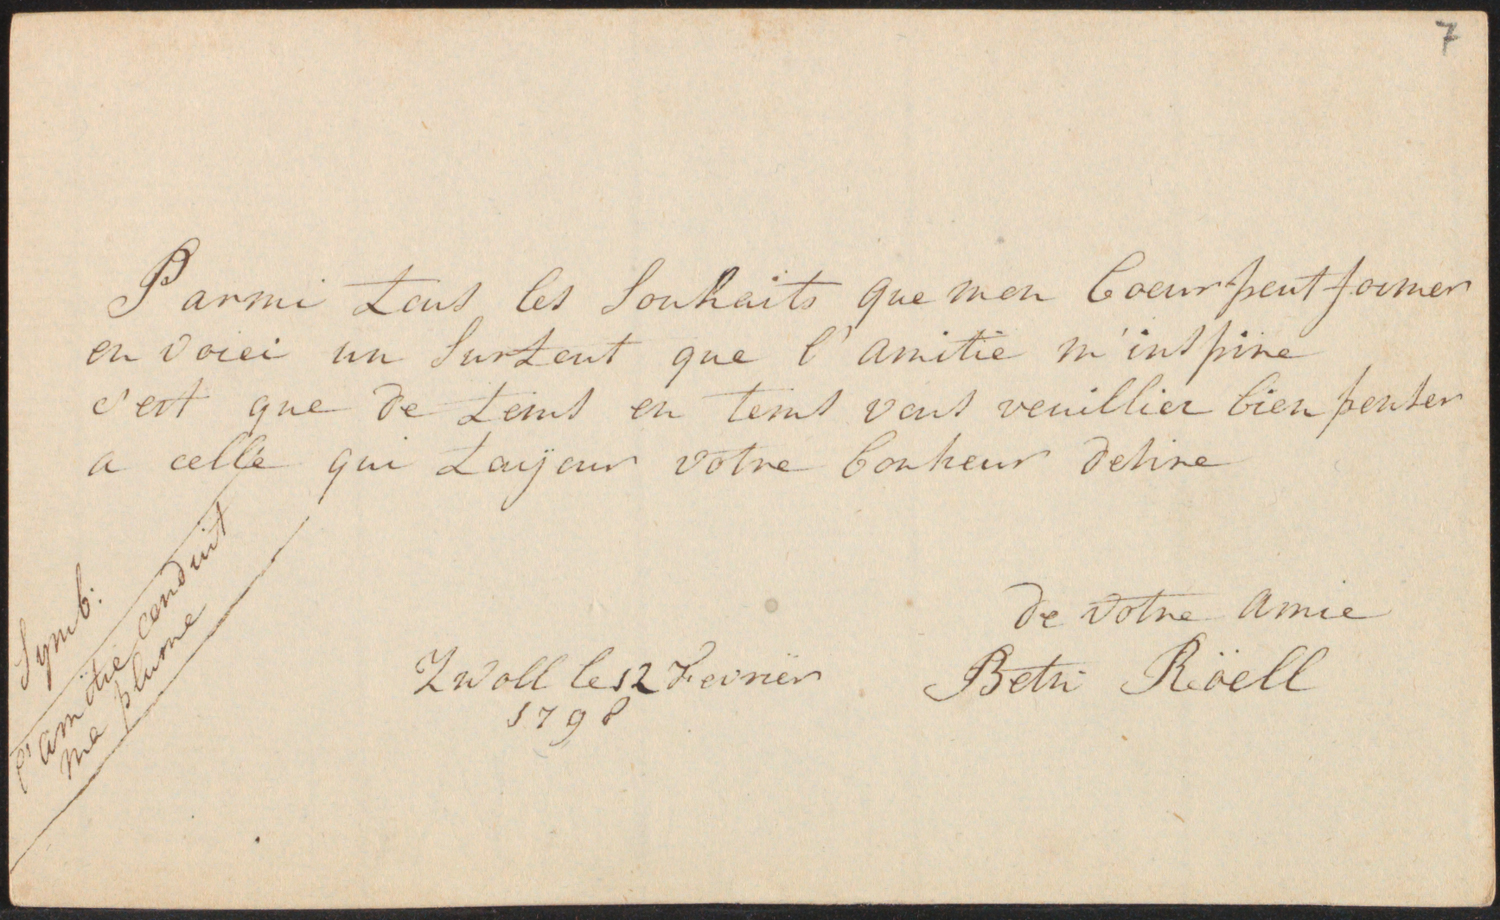 7
Parmi tous les Souhaits que mon Coeur peut former
en voici un Surtout que l'amitie m'inspire
c'est que de tems en tems vous veuillier bien penser
a celle qui toujour votre bonheur desire
de votre amie
Betsi Röell
Zwoll le 12 Fevrier
1798
Symb:
l'amitie conduit
ma plume